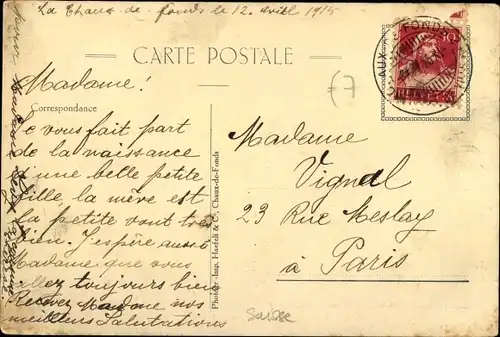 La Chaux de fonds le 12. Avril 1915
CARTE POSTALE
Madame!
Correspondance
Je vous fait part
de la naissance
d'une belle petite
fille, la mère est
la petite vont très
bien. J'espère aussi
Madame que vous
allez toujours bien
Recevez Madame nos
meilleurs Salutations
Phototyp.-Imp. Haefeli & C. Chaux-de-Fonds
AUX - FONDS
HELVETIA
(7
Madame
Vignal
23 Rue Meslay
à Paris
Suisse